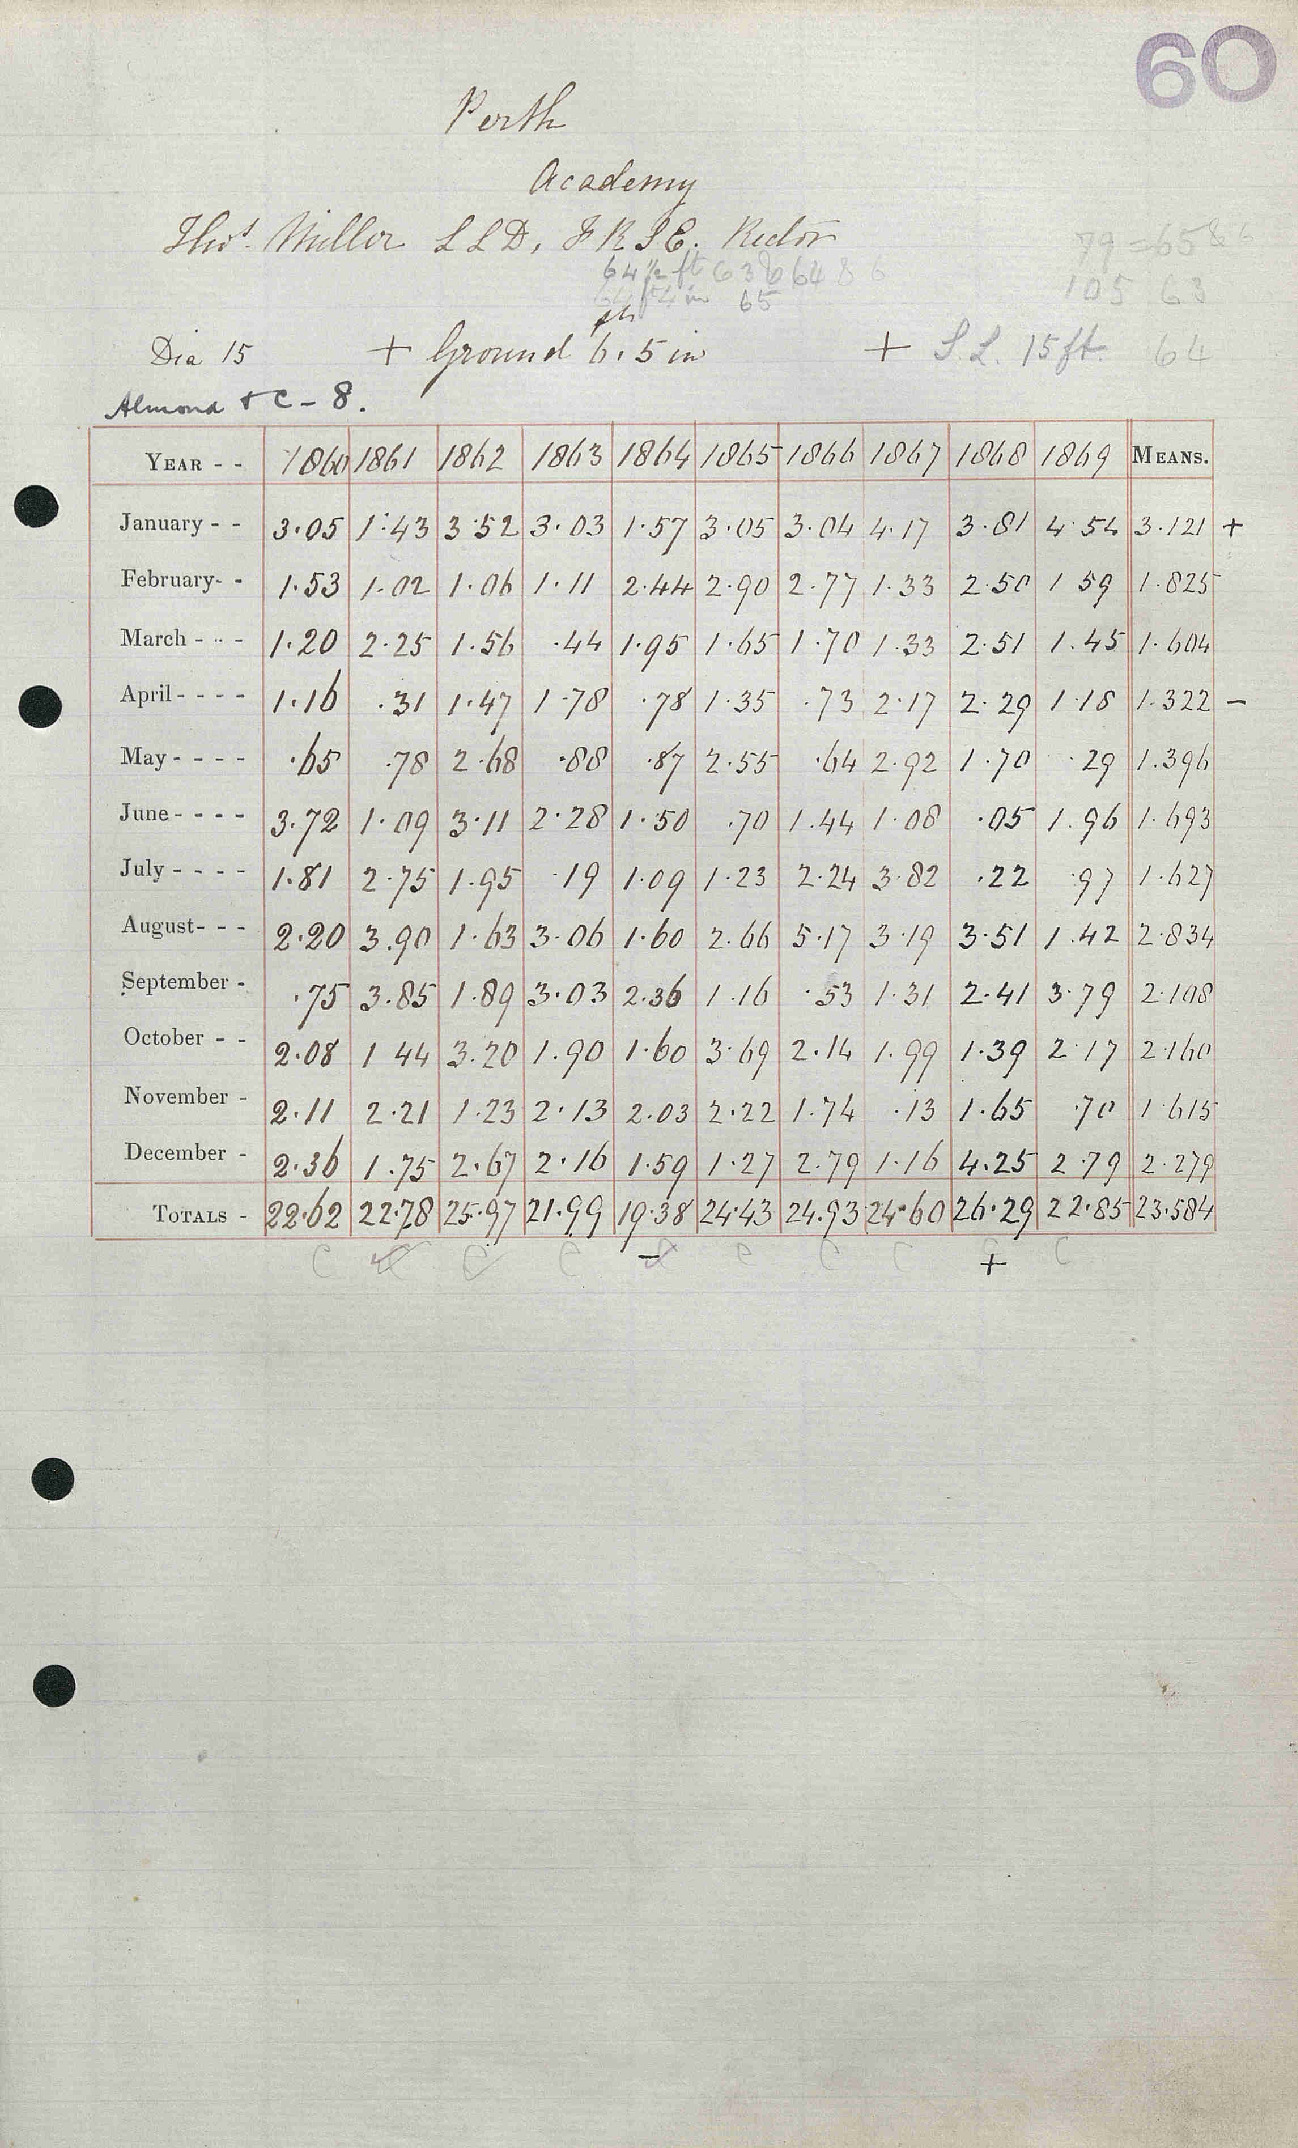 60
Perth
Academy
Thos. Miller LLD, FRSE. Rector
79 65 & 6
64 1/2 ft 63 & 64 & 6
105 63
4 in 65
ft
Dia 15 + Ground 6.5 in + S.L. 15 ft. 64
Almond & C - 8.
YEAR - - 1860 1861 1862 1863 1864 1865 1866 1867 1868 1869 MEANS.
January - - 3.05 1.43 3.52 3.03 1.57 3.05 3.04 4.17 3.81 4.54 3.121 +
February- - 1.53 1.02 1.06 1.11 2.44 2.90 2.77 1.33 2.50 1.59 1.825
March - - - 1.20 2.25 1.56 .44 1.95 1.65 1.70 1.33 2.51 1.45 1.604
April - - - - 1.16 .31 1.47 1.78 .78 1.35 .73 2.17 2.29 1.18 1.322 -
May - - - - .65 .78 2.68 .88 .87 2.55 .64 2.92 1.70 .29 1.396
June - - - - 3.72 1.09 3.11 2.28 1.50 .70 1.44 1.08 .05 1.96 1.693
July - - - - 1.81 2.75 1.95 .19 1.09 1.23 2.24 3.82 .22 .97 1.627
August- - - 2.20 3.90 1.63 3.06 1.60 2.66 5.17 3.19 3.51 1.42 2.834
September - .75 3.85 1.89 3.03 2.36 1.16 .53 1.31 2.41 3.79 2.108
October - - 2.08 1.44 3.20 1.90 1.60 3.69 2.14 1.99 1.39 2.17 2.160
November - 2.11 2.21 1.23 2.13 2.03 2.22 1.74 .13 1.65 .70 1.615
December - 2.36 1.75 2.67 2.16 1.59 1.27 2.79 1.16 4.25 2.79 2.279
TOTALS - 22.62 22.78 25.97 21.99 19.38 24.43 24.93 24.60 26.29 22.85 23.584
C C C C - C C C C + C